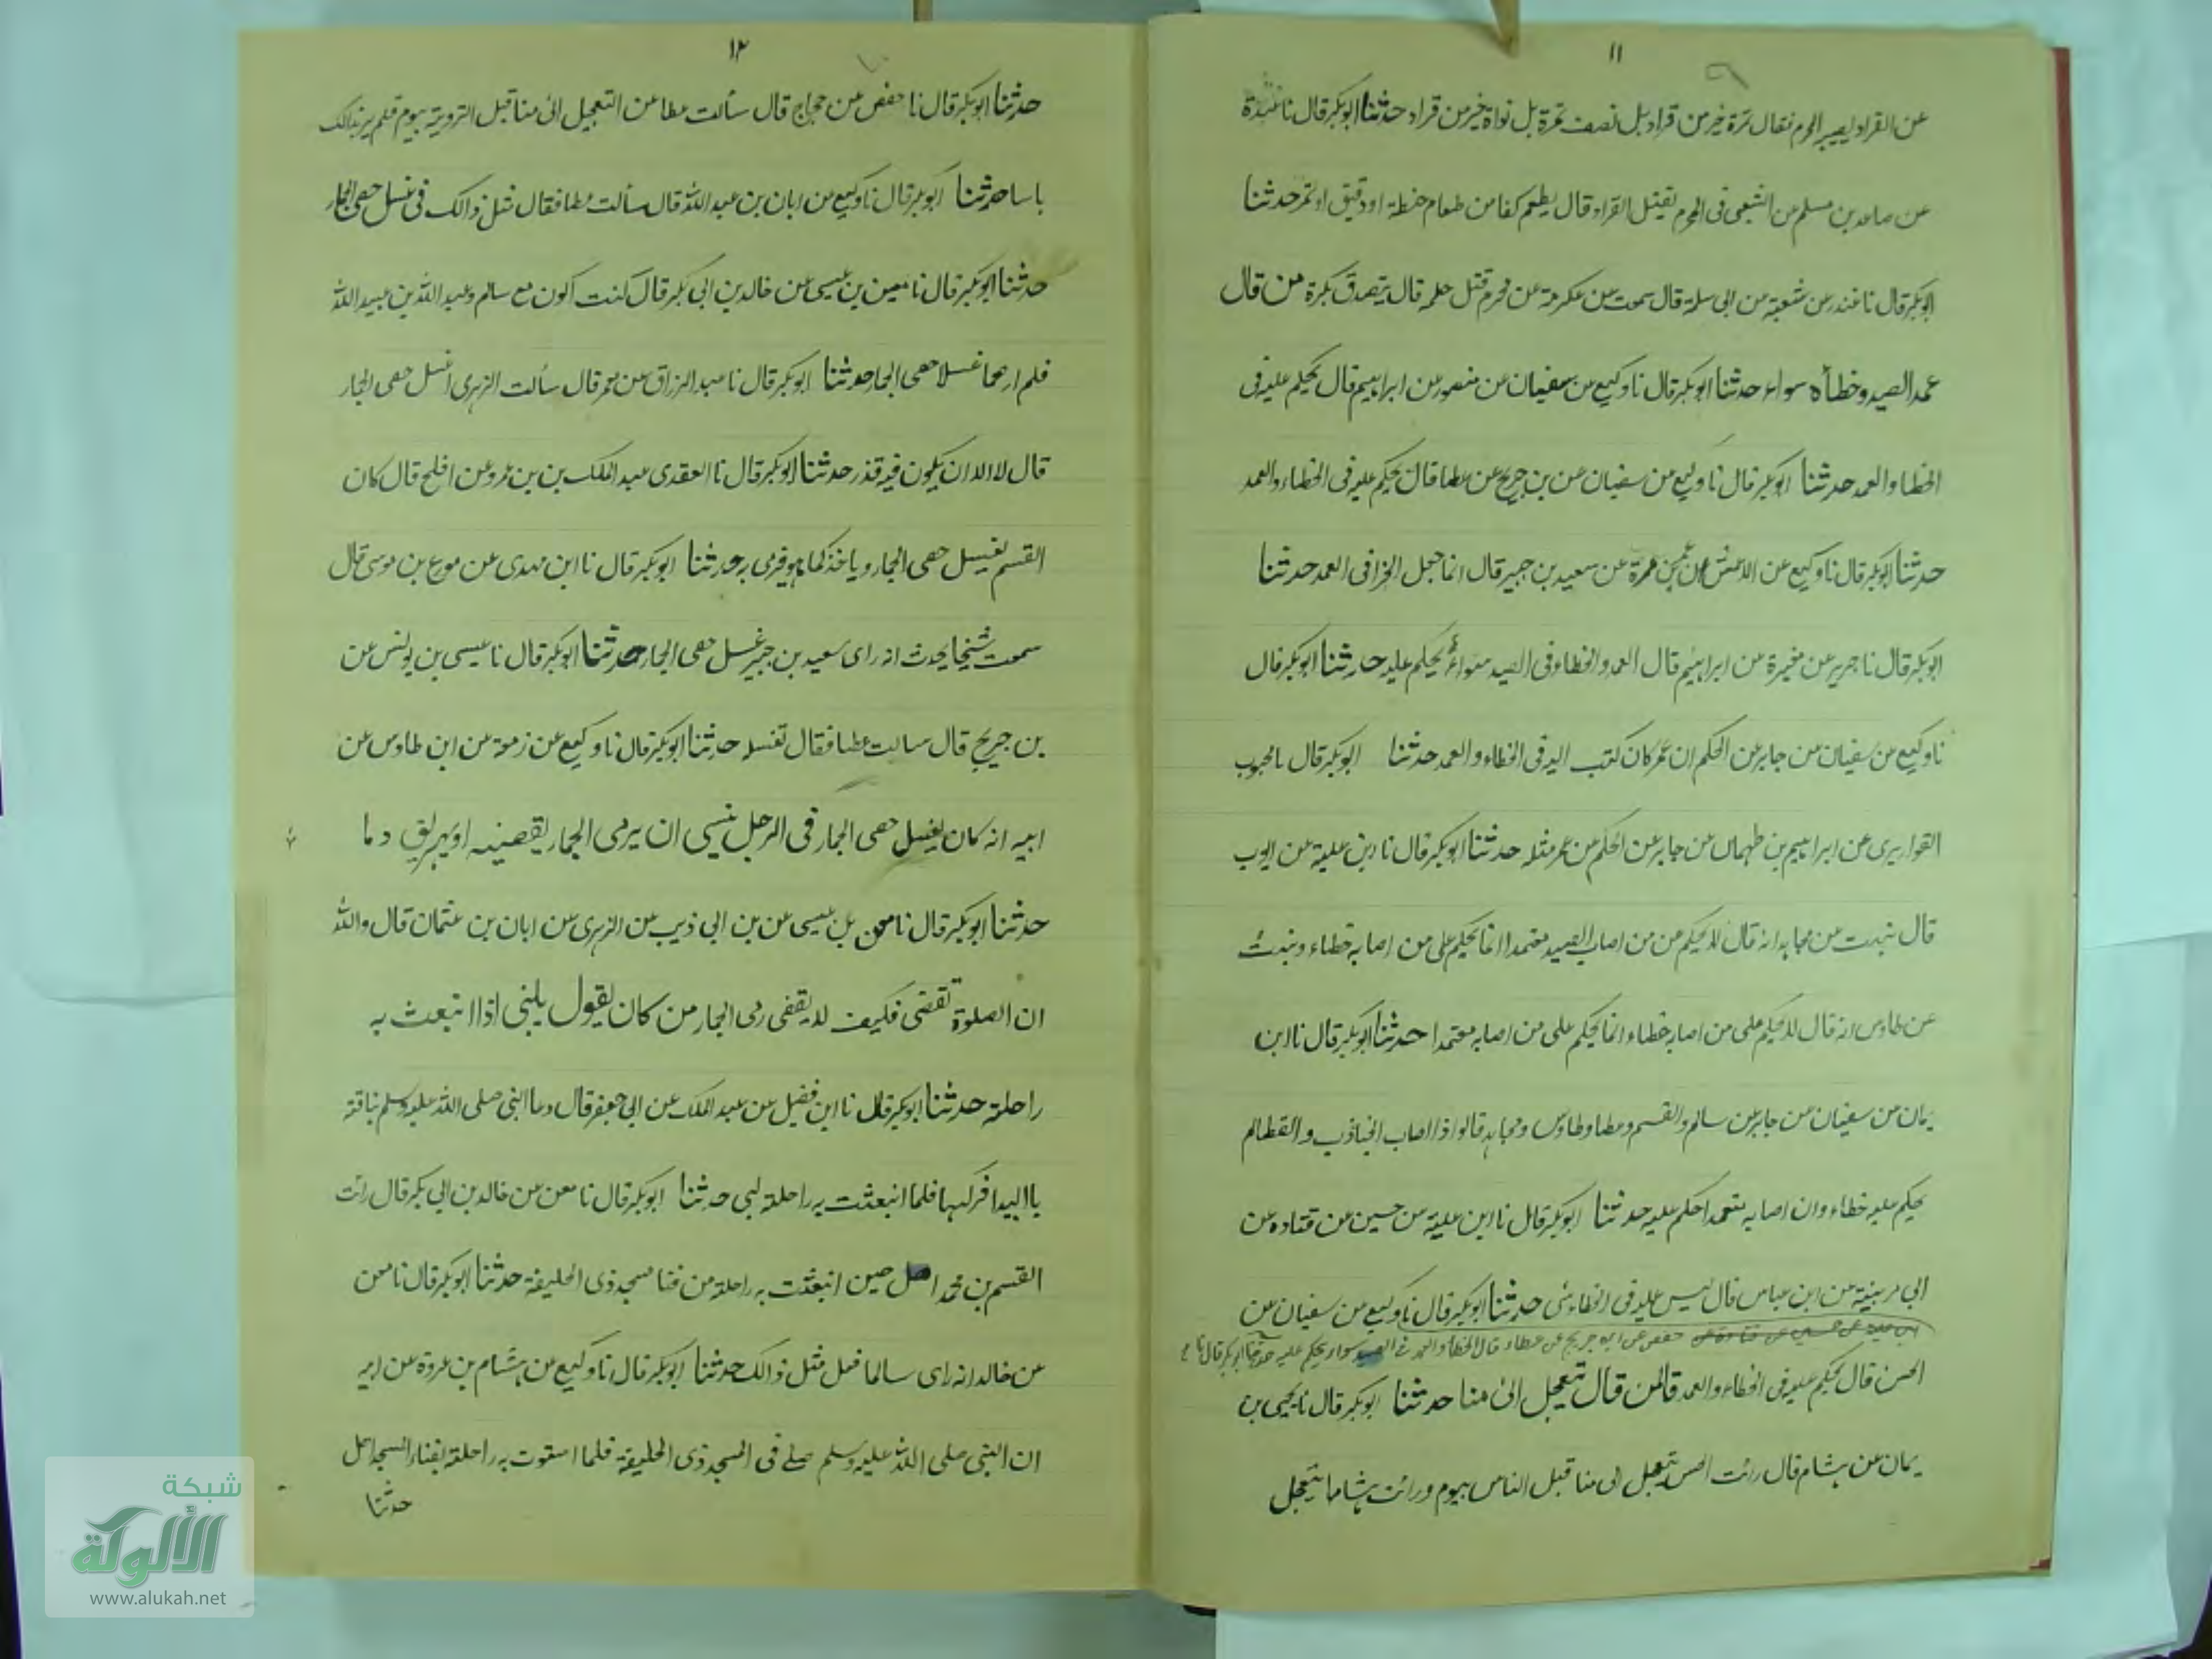 ١١
عن القراد يصيب المحرم فقال تمرة خير من قراد بل نصف تمرة بل نواة خير من قراد حدثنا ابوبكر قال نا عبدة
عن صاعد بن مسلم عن الشعبي في المحرم يقتل القراد قال يطعم كفا من طعام حنطة او دقيق او تمر حدثنا
ابوبكر قال نا غندر عن شعبة عن ابى سلمة قال سمعت عن عكرمة عن محرم قتل حلمة قال يتصدق بكسرة من قال
عمد الصيد وخطأه سواء حدثنا ابوبكر قال نا وكيع عن سفيان عن منصور عن ابراهيم قال يحكم عليه فى
الخطاء والعمد حدثنا ابوبكر قال نا وكيع عن سفيان عن بن جريج عن عطا قال يحكم عليه فى الخطاء والعمد
حدثنا ابوبكر قال نا وكيع عن الاعمش عن عمرو بن مرة عن سعيد بن جبير قال انما جعل الجزا فى العمد حدثنا
ابوبكر قال نا جرير عن مغيرة عن ابراهيم قال العمد والخطاء فى الصيد سواء يحكم عليه حدثنا ابوبكر قال
نا وكيع عن سفيان عن جابر عن الحكم ان عمر كان كتب اليه فى الخطاء والعمد حدثنا ابوبكر قال نا محبوب
القواريرى عن ابراهيم بن طهمان عن جابر عن الحكم عن عمر مثله حدثنا ابوبكر قال نا ابن علية عن ايوب
قال نبئت عن مجاهد انه قال لا يحكم من من اصاب الصيد متعمدا انما يحكم على من اصابه خطاء ونبئت
عن طاوس انه قال لا يحكم على من اصابه خطاء انما يحكم على من اصابه متعمدا حدثنا ابوبكر قال نا ابن
يمان عن سفيان عن جابر عن سالم والقسم وعطا وطاوس ومجاهد قالوا اذا اصاب الجنادب والقطا لم
يحكم عليه خطاء وان اصابه متعمدا حكم عليه حدثنا ابوبكر قال نا ابن علية عن حسين عن قتاده عن
ابي مدينة عن ابن عباس قال ليس عليه فى الخطاء شى حدثنا ابوبكر قال نا وكيع عن سفيان عن
حفص عن ابن جريج عن عطاء قال الخطا والعمد فى الصيد سواء يحكم عليه حدثنا ابوبكر قال نا
الحسن قال يحكم عليه فى الخطاء والعمد قال من قال تعجل الىٰ منا حدثنا ابوبكر قال نا يحيى بن
يمان عن هشام قال رائت الحسن تعجل الى منا قبل الناس بيوم ورائت هشاما يتعجل
١٢
حدثنا ابوبكر قال نا حفص عن حجاج قال سألت عطا عن التعجيل الىٰ منا قبل التروية بيوم فلم ير بذالك
باسا حدثنا ابوبكر قال نا وكيع عن ابان بن عبد الله قال سألت عطا فقال مثل ذالك فى غسل حصى الجمار
حدثنا ابوبكر قال نا معن بن عيسى عن خالد بن ابى بكر قال كنت اكون مع سالم وعبد الله بن عبيد الله
فلم ارهما غسلا حصى الجمار حدثنا ابوبكر قال نا عبد الرزاق عن معمر قال سألت الزهرى اغسل حصى الجمار
قال لا الا ان يكون فيه قذر حدثنا ابوبكر قال نا العقدى عبد الملك بن بن عمرو عن افلح قال كان
القسم يغسل حصى الجمار وياخذ كما هو فرمى به حدثنا ابوبكر قال نا ابن مهدى عن مورع بن موسى قال
سمعت شيخا يحدث انه راى سعيد بن جبير غسل حصى الجمار حدثنا ابوبكر قال نا عيسى بن يونس عن
بن جريج قال سالت عطا فقال تغسله حدثنا ابوبكر قال نا وكيع عن زمعة عن ابن طاوس عن
ابيه انه كان يغسل حصى الجمار فى الرجل ينسى ان يرمى الجمار يقضينه او يهريق دما
حدثنا ابوبكر قال نا معن بن عيسى عن بن ابى ذيب عن الزهرى عن ابان بن عثمان قال والله
ان الصلوة تقضى فكيف لا يقضى رمى الجمار من كان يقول يلبى اذا انبعث به
راحلة حدثنا ابوبكر قال نا ابن فضيل عن عبد الملك عن ابى جعفر قال دعا النبى صلى الله عليه وسلم بناقة
با البيدا فركبها فلما انبعثت به راحلة لبى حدثنا ابوبكر قال نا معن عن خالد بن ابى بكر قال رائت
القسم بن محمد اهل حين انبعثت به راحلة من فنا مسجد ذى الحليفة حدثنا ابوبكر قال نا معن
عن خالد انه راى سالما فعل مثل ذالك حدثنا ابوبكر قال نا وكيع عن هشام بن عروة عن ابيه
ان النبى صلى الله عليه وسلم صلے فى المسجد ذى الحليفة فلما استوت به راحلة بفناء المسجد اهل
حدثنا
شبكة
الألوكة
www.alukah.net